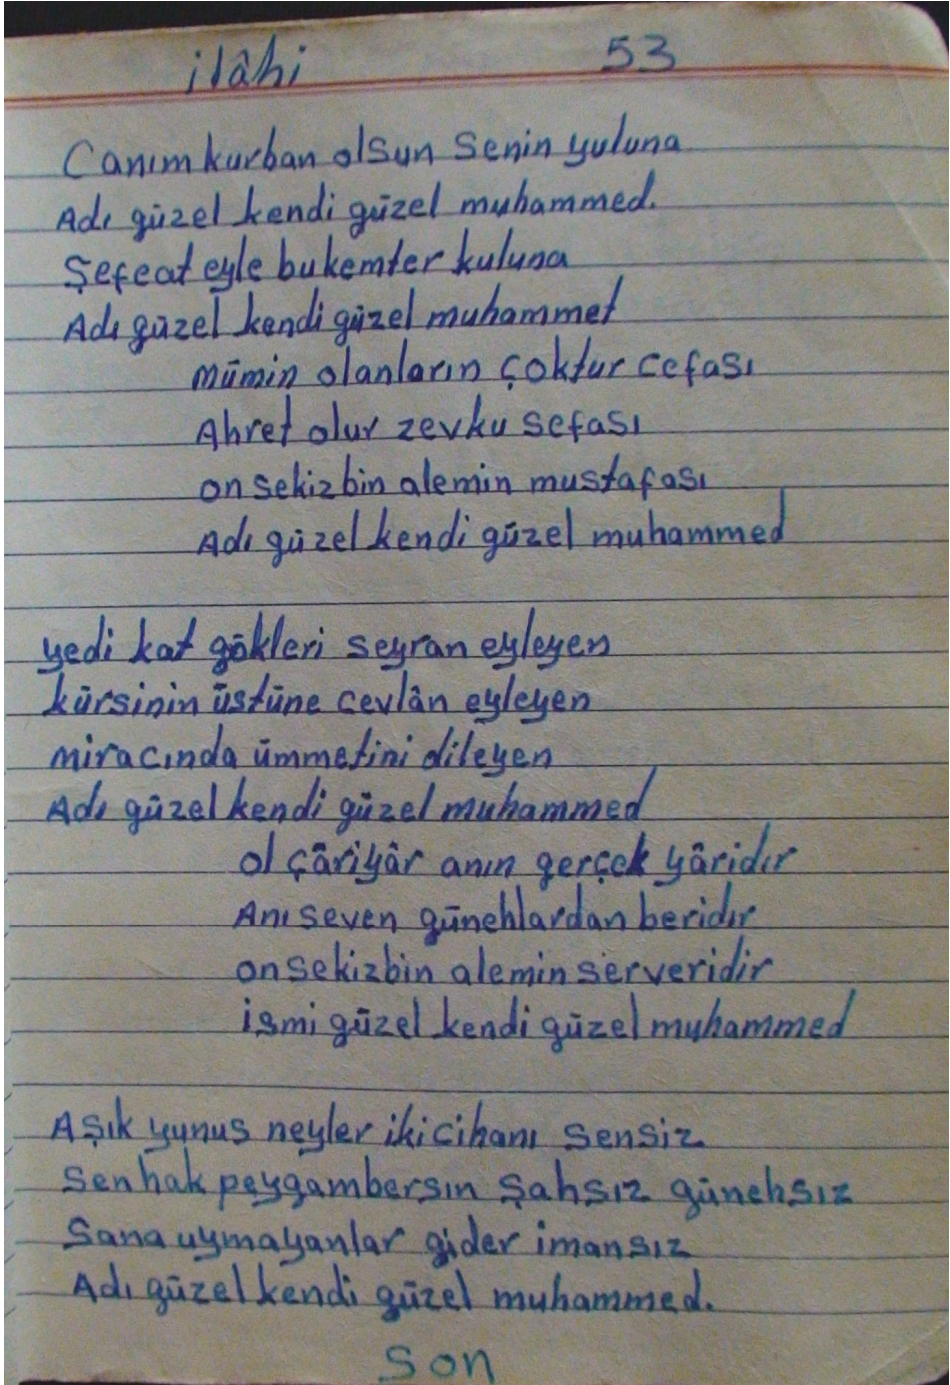 ilâhi 53
Canım kurban olsun senin yuluna
Adı güzel kendi güzel muhammed.
Şefeat eyle bu kemter kuluna
Adı güzel kendi güzel muhammet
mümin olanların çoktur cefası
Ahret olur zevku sefası
on sekizbin alemin mustafası
Adı güzel kendi güzel muhammed
yedi kat gökleri seyran eyleyen
kürsinin üstüne cevlân eyleyen
miracında ümmetini dileyen
Adı güzel kendi güzel muhammed
ol çâriyâr anın gerçek yâridır
Anı seven günehlardan beridır
on sekizbin alemin serveridir
ismi güzel kendi güzel muhammed
Aşık yunus neyler iki cihanı sensiz
Sen hak peygambersın Şahsız günehsız
Sana uymayanlar gider imansız
Adı güzel kendi güzel muhammed.
Son